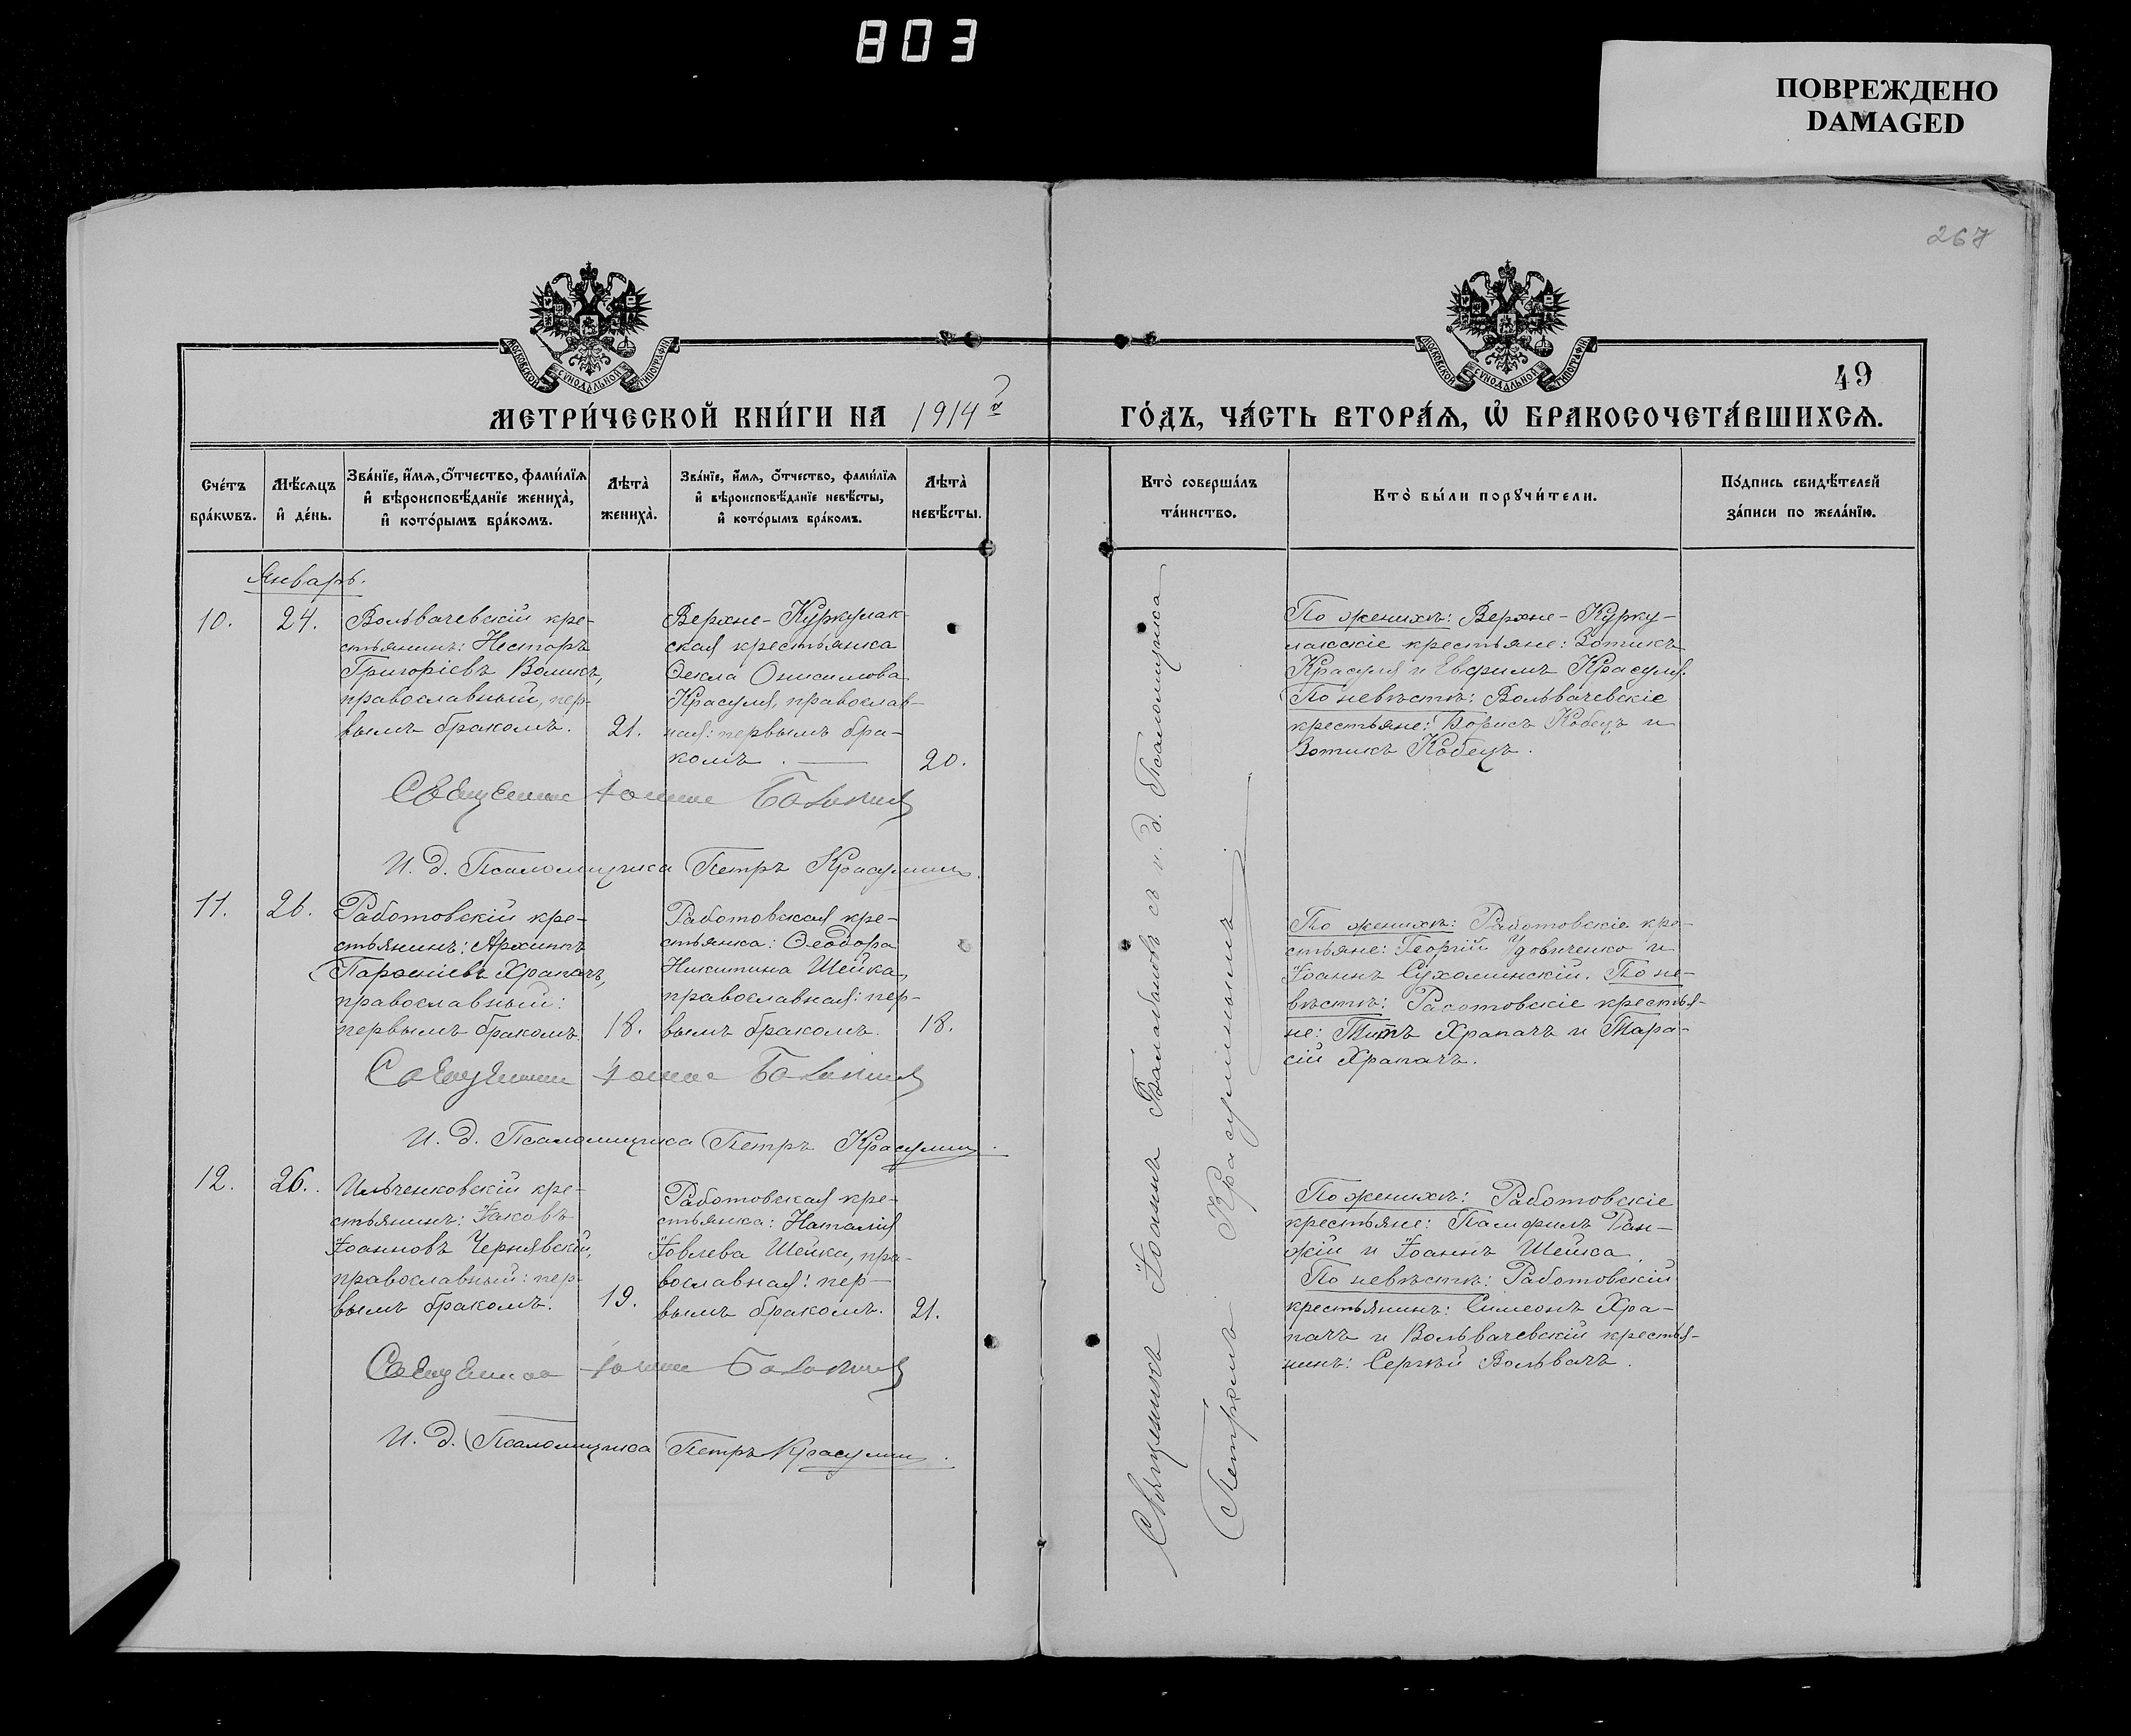 803
ПОВРЕЖДЕНО
DAMAGED
267
МОСКОВСКОЙ СѴНОДАЛЬНОЙ ТИПОГРАФІИ
МОСКОВСКОЙ СѴНОДАЛЬНОЙ ТИПОГРАФІИ
49
МЕТРИ́ЧЕСКОЙ КНИ́ГИ НА 1914 ГО́ДЪ, ЧА́СТЬ ВТОРА́Ѧ, Ѽ БРАКОСОЧЕТА́ВШИХСѦ.
Сче́тъ бра́кѡвъ.
Мѣ́сѧцъ и҆ де́нь.
Зва́нїе, и҆́мѧ, ѻ҆́тчество, фами́лїѧ
и҆ вѣроисповѣ́данїе жениха̀,
и҆ кото́рымъ бра́комъ.
Лѣта̀ жениха̀.
Зва́нїе, и҆́мѧ, ѻ҆́тчество, фами́лїѧ
и҆ вѣроисповѣ́данїе невѣ́сты,
и҆ кото́рымъ бра́комъ.
Лѣта̀ невѣ́сты.
Кто̀ соверша́лъ та́инство.
Кто̀ бы́ли порꙋчи́тели.
По́дпись свидѣ́телей
за́писи по жела́нїю.
Январь.
10.
24.
Вольвачевскій кре-
стьянинъ: Несторъ
Григоріевъ Воликъ,
православный, пер-
вымъ бракомъ.
21.
Верхне-Куркулак-
ская крестьянка
Ѳекла Онисимова
Красуля, православ-
ная: первымъ бра-
комъ.
20.
По женихѣ: Верхне-Курку-
лакскіе крестьяне: Зотикъ
Красуля и Евфимъ Красуля.
По невѣстѣ: Вольвачевскіе
крестьяне: Борисъ Кобецъ и
Зотикъ Кобецъ.
Священникъ Іоаннъ Балабановъ
И. д. Псаломщика Петръ Красулинъ.
11.
26.
Работовскій кре-
стьянинъ: Архиппъ
Парѳеніевъ Храпачъ,
православный:
первымъ бракомъ.
18.
Работовская кре-
стьянка: Ѳеодора
Никитина Шейка,
православная: пер-
вымъ бракомъ.
18.
По женихѣ: Работовскіе кре-
стьяне: Георгій Удовиченко и
Іоаннъ Сухоминскій. По не-
вѣстѣ: Работовскіе крестья-
не: Титъ Храпачъ и Тара-
сій Храпачъ.
Священникъ Іоаннъ Балабановъ
И. д. Псаломщика Петръ Красулинъ.
12.
26.
Ильченковскій кре-
стьянинъ: Іаковъ
Іоанновъ Чернявскій,
православный: пер-
вымъ бракомъ.
19.
Работовская кре-
стьянка: Наталія
Іовлева Шейка, пра-
вославная: пер-
вымъ бракомъ.
21.
По женихѣ: Работовскіе
крестьяне: Памфилъ Ран-
жій и Іоаннъ Шейка.
По невѣстѣ: Работовскій
крестьянинъ: Симеонъ Хра-
пачъ и Вольвачевскій крестья-
нинъ: Сергѣй Вольвачъ.
Священникъ Іоаннъ Балабановъ
И. д. Псаломщика Петръ Красулинъ.
Священникъ Іоаннъ Балабановъ съ и. д. Псаломщика
Петромъ Красулинымъ